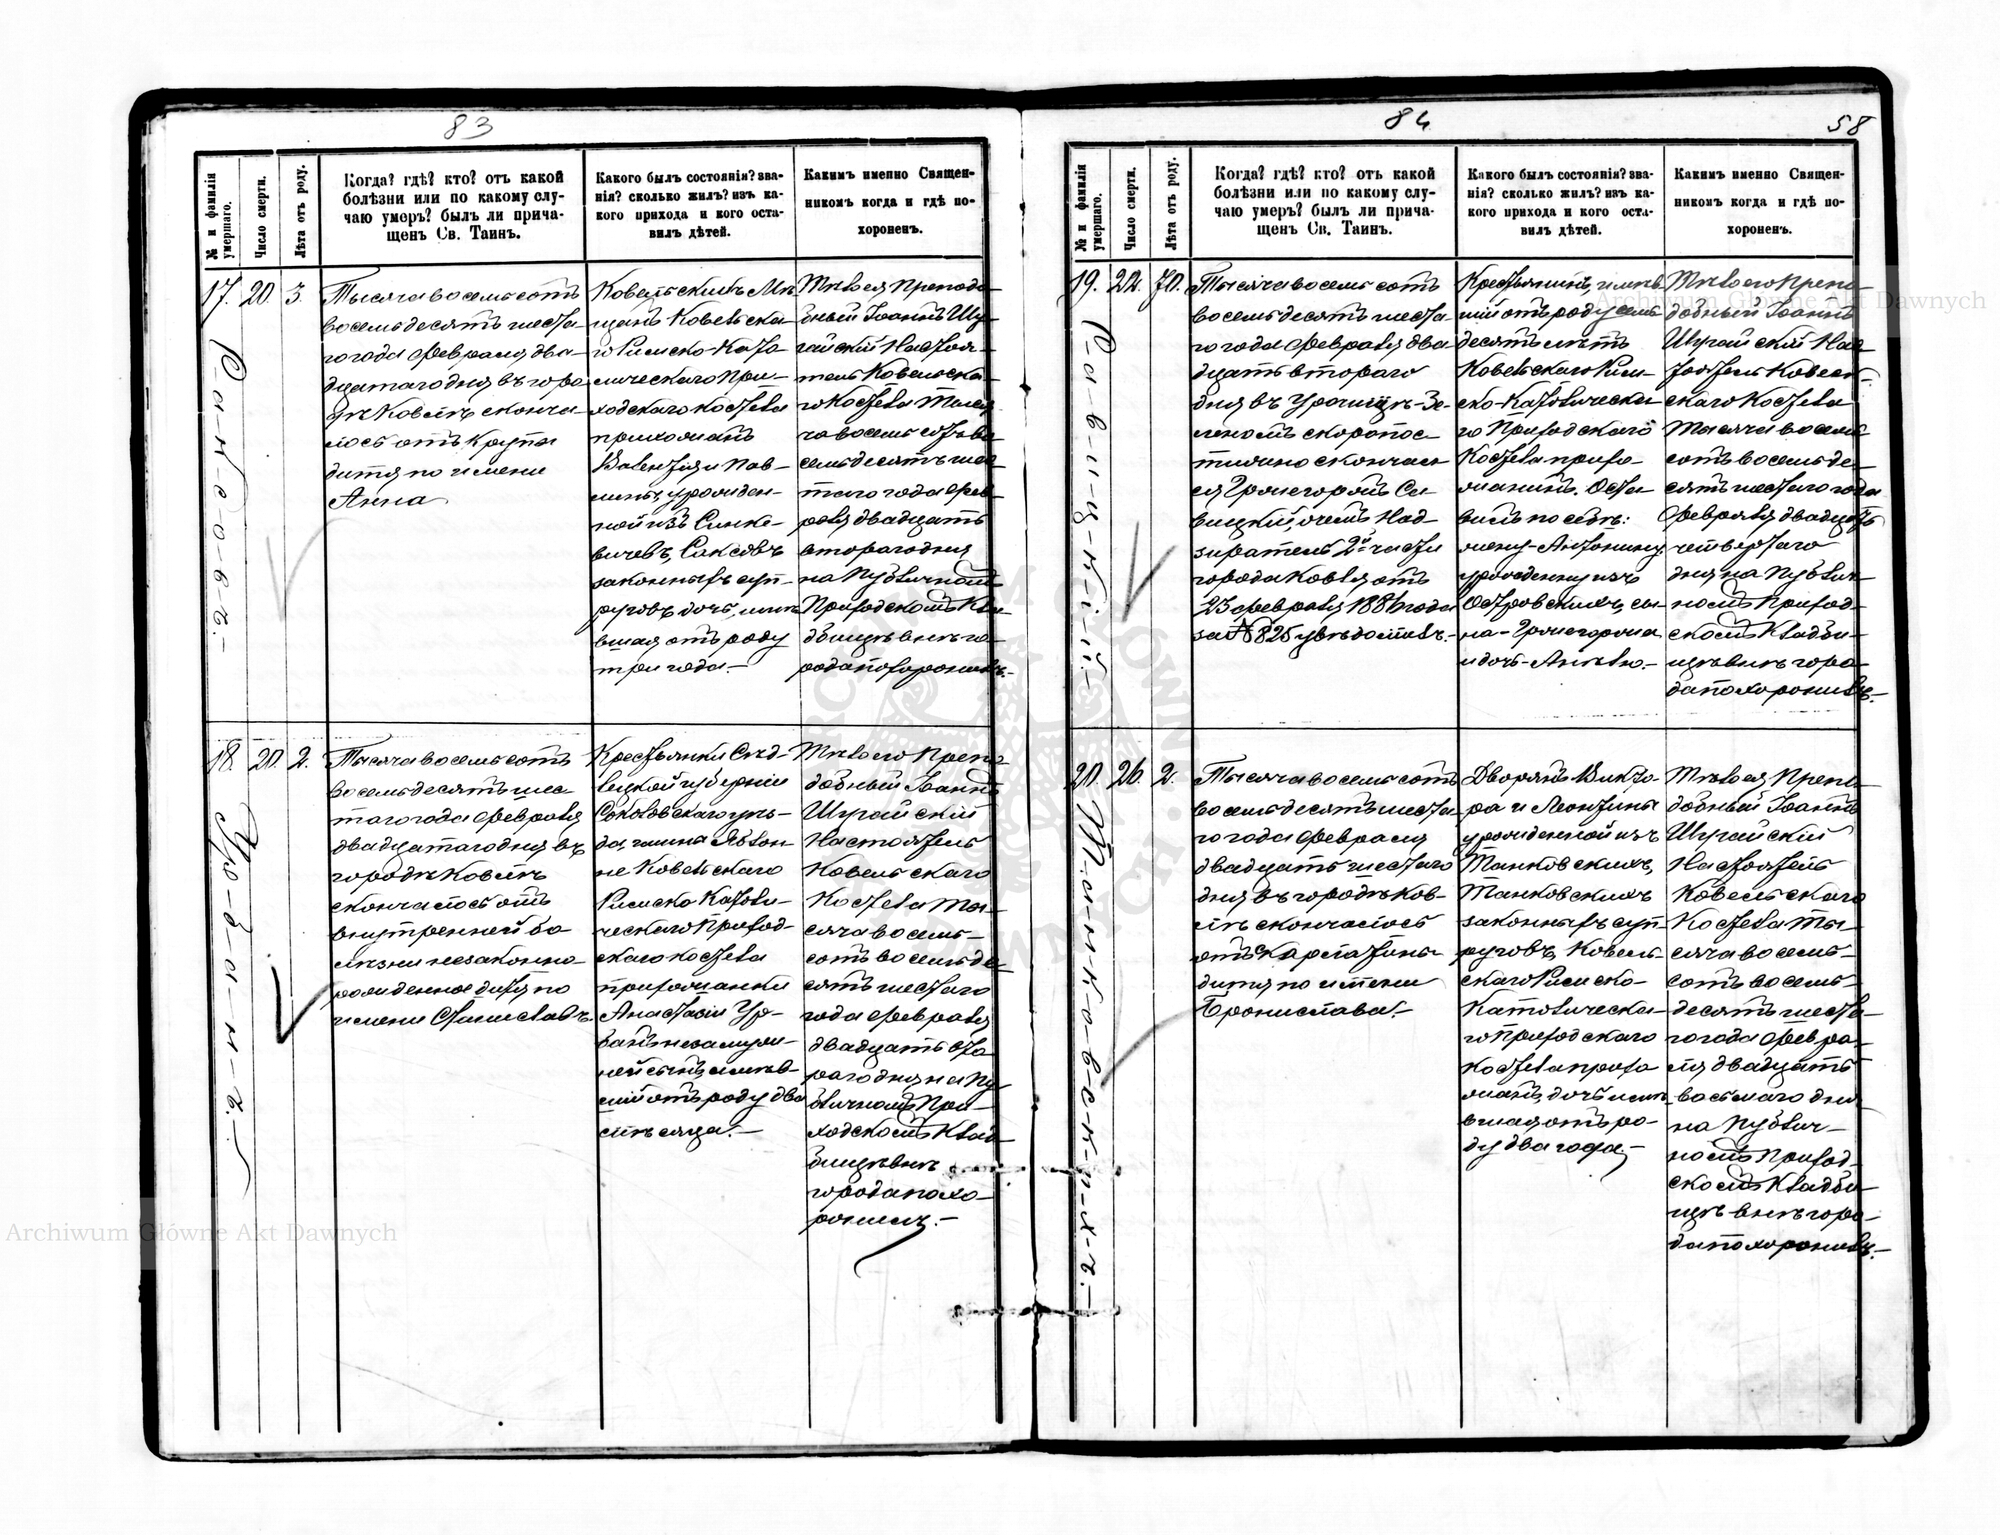 83
№ и фамилія умершаго.
Число смерти.
Лѣта отъ роду.
Когда? гдѣ? кто? отъ какой
болѣзни или по какому слу-
чаю умеръ? былъ ли прича-
щенъ Св. Таинъ.
Какого былъ состоянія? зва-
нія? сколько жилъ? изъ ка-
кого прихода и кого оста-
вилъ дѣтей.
Какимъ именно Священ-
никомъ когда и гдѣ по-
хороненъ.
17.
20.
3.
Тысяча восемь сотъ
восемьдесятъ шеста-
го года февраля два-
дцатаго дня въ горо-
дѣ Ковлѣ сконча-
лось отъ Крупы
дитя по имени
Анна
Ковельскихъ Мѣ-
щанъ Ковельска-
го Римско-Като
лическаго При-
ходскаго костела
прихожанъ
урожден-
ной изъ Синке-
вичевъ,
законныхъ суп-
руговъ дочь, имѣ
вшая отъ роду
три года.-
Препода
бный Іоаннъ Шу-
гайскій Настоя-
тель Ковельска-
го Костела Тыся
ча восемь сотъ во
семьдесятъ шес
таго года фев-
раля двадцать
втораго дня
на Публичномъ
Приходскомъ Кла-
дбищѣ внѣ го-
рода похоронилъ.-
18.
20.
2.
У-р-б-а-н-ъ.
Тысяча восемь сотъ
восемьдесятъ шес
таго года февраля
двадцатаго дня въ
городѣ Ковлѣ
скончалось отъ
внутренней бо
лѣзни незаконно-
рожденное дитя по
имени Станиславъ.
Крестьянки Сѣд-
лецкой губерніи
Соколовскаго уѣз-
да, гмина Яблон-
не Ковельскаго
Римско Католи-
ческаго Приход-
скаго костела
прихожанки
Анастасіи Ур-
банъ незамуж-
ней сынъ имѣв-
шій отъ роду два
мѣсяца.-
Препо-
добный Іоаннъ
Шугайскій
Настоятель
Ковельскаго
Костела Ты-
сяча восемь-
сотъ восемьде
сятъ шестаго
года февраля
двадцать вто
раго дня на Пу-
бличномъ При-
ходскомъ Клад-
бищѣ внѣ
города похо-
ронилъ.-
84
58
№ и фамилія умершаго.
Число смерти.
Лѣта отъ роду.
Когда? гдѣ? кто? отъ какой
болѣзни или по какому слу-
чаю умеръ? былъ ли прича-
щенъ Св. Таинъ.
Какого былъ состоянія? зва-
нія? сколько жилъ? изъ ка-
кого прихода и кого оста-
вилъ дѣтей.
Какимъ именно Священ-
никомъ когда и гдѣ по-
хороненъ.
19.
22.
70.
С-а-в-и-ц-к-і-й.-
Тысяча восемь сотъ
восемьдесятъ шеста-
го года февраля два
дцать втораго
дня въ Урочищѣ-Зе-
леномъ скоропос-
тижно скончал-
ся Григорій Са-
вицкій, о чемъ Над-
зиратель 2й части
города Ковля отъ
23 февраля 1886 года
за № 825 увѣдомилъ.-
Крестьянинъ, имѣв
шій отъ роду семь
десятъ лѣтъ
Ковельскаго Рим-
ско-Католическа
го Приходскаго
Костела прихо-
жанинъ. Оста-
вилъ по себѣ:
жену-Антонину
урожденную изъ
Островскихъ, сы-
на-Григорія
и дочь-Анелю.-
Препо-
добный Іоаннъ
Шугайскій Нас-
тоятель Ковель-
скаго Костела
Тысяча восемь
сотъ восемьде-
сятъ шестаго года
февраля двадцать
четвертаго
дня на Публич-
номъ Приход-
скомъ Кладби-
щѣ внѣ горо-
да похоронилъ.-
20.
26.
2.
Т-а-н-к-о-в-с-к-и-х-ъ.-
Тысяча восемь сотъ
восемьдесятъ шеста-
го года февраля
двадцать шестаго
дня въ городѣ Ков-
лѣ скончалось
отъ Скарлатины
дитя по имени
Бронислава.-
Дворянъ Викто-
ра и Леонтины
урожденной изъ
Танковскихъ,
Танковскихъ
законныхъ суп-
руговъ, Ковель-
скаго Римско-
Католическа-
го Приходскаго
костела прихо
жанъ, дочь имѣ-
вшая отъ ро-
ду два года,-
Препо-
добный Іоаннъ
Шугайскій
Настоятель
Ковельскаго
Костела Ты-
сяча восемь-
сотъ восемь-
десятъ шеста-
го года февра-
ля двадцать
восьмаго дня
на Публич-
номъ Приход-
скомъ Кладби
щѣ внѣ горо-
да похоронилъ.-
Archiwum Główne Akt Dawnych
Archiwum Główne Akt Dawnych